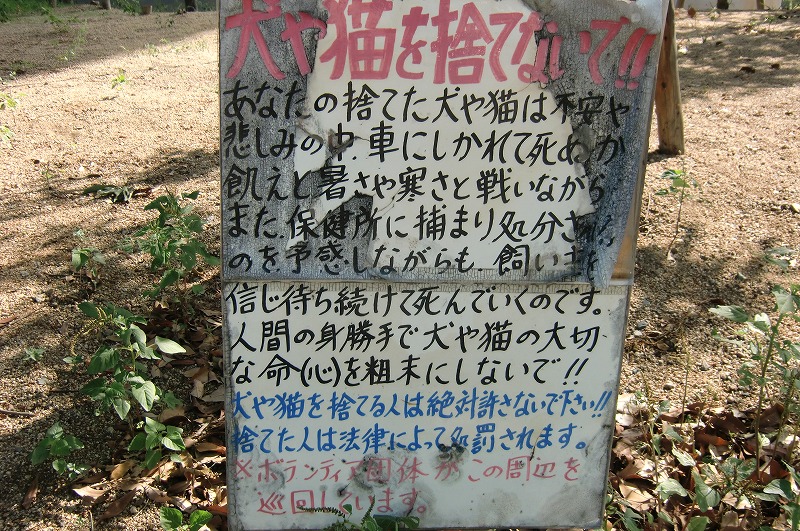 犬や猫を捨てないで!!
あなたの捨てた犬や猫は不安や
悲しみの中、車にしかれて死ぬか
飢えと暑さや寒さと戦いながら
また、保健所に捕まり処分さ
のを予感しながらも、飼い主を
信じ待ち続けて死んでいくのです。
人間の身勝手で犬や猫の大切
な命(心)を粗末にしないで!!
犬や猫を捨てる人は絶対許さないで下さい!!
捨てた人は法律によって処罰されます。
※ボランティア団体がこの周辺を
巡回しています。